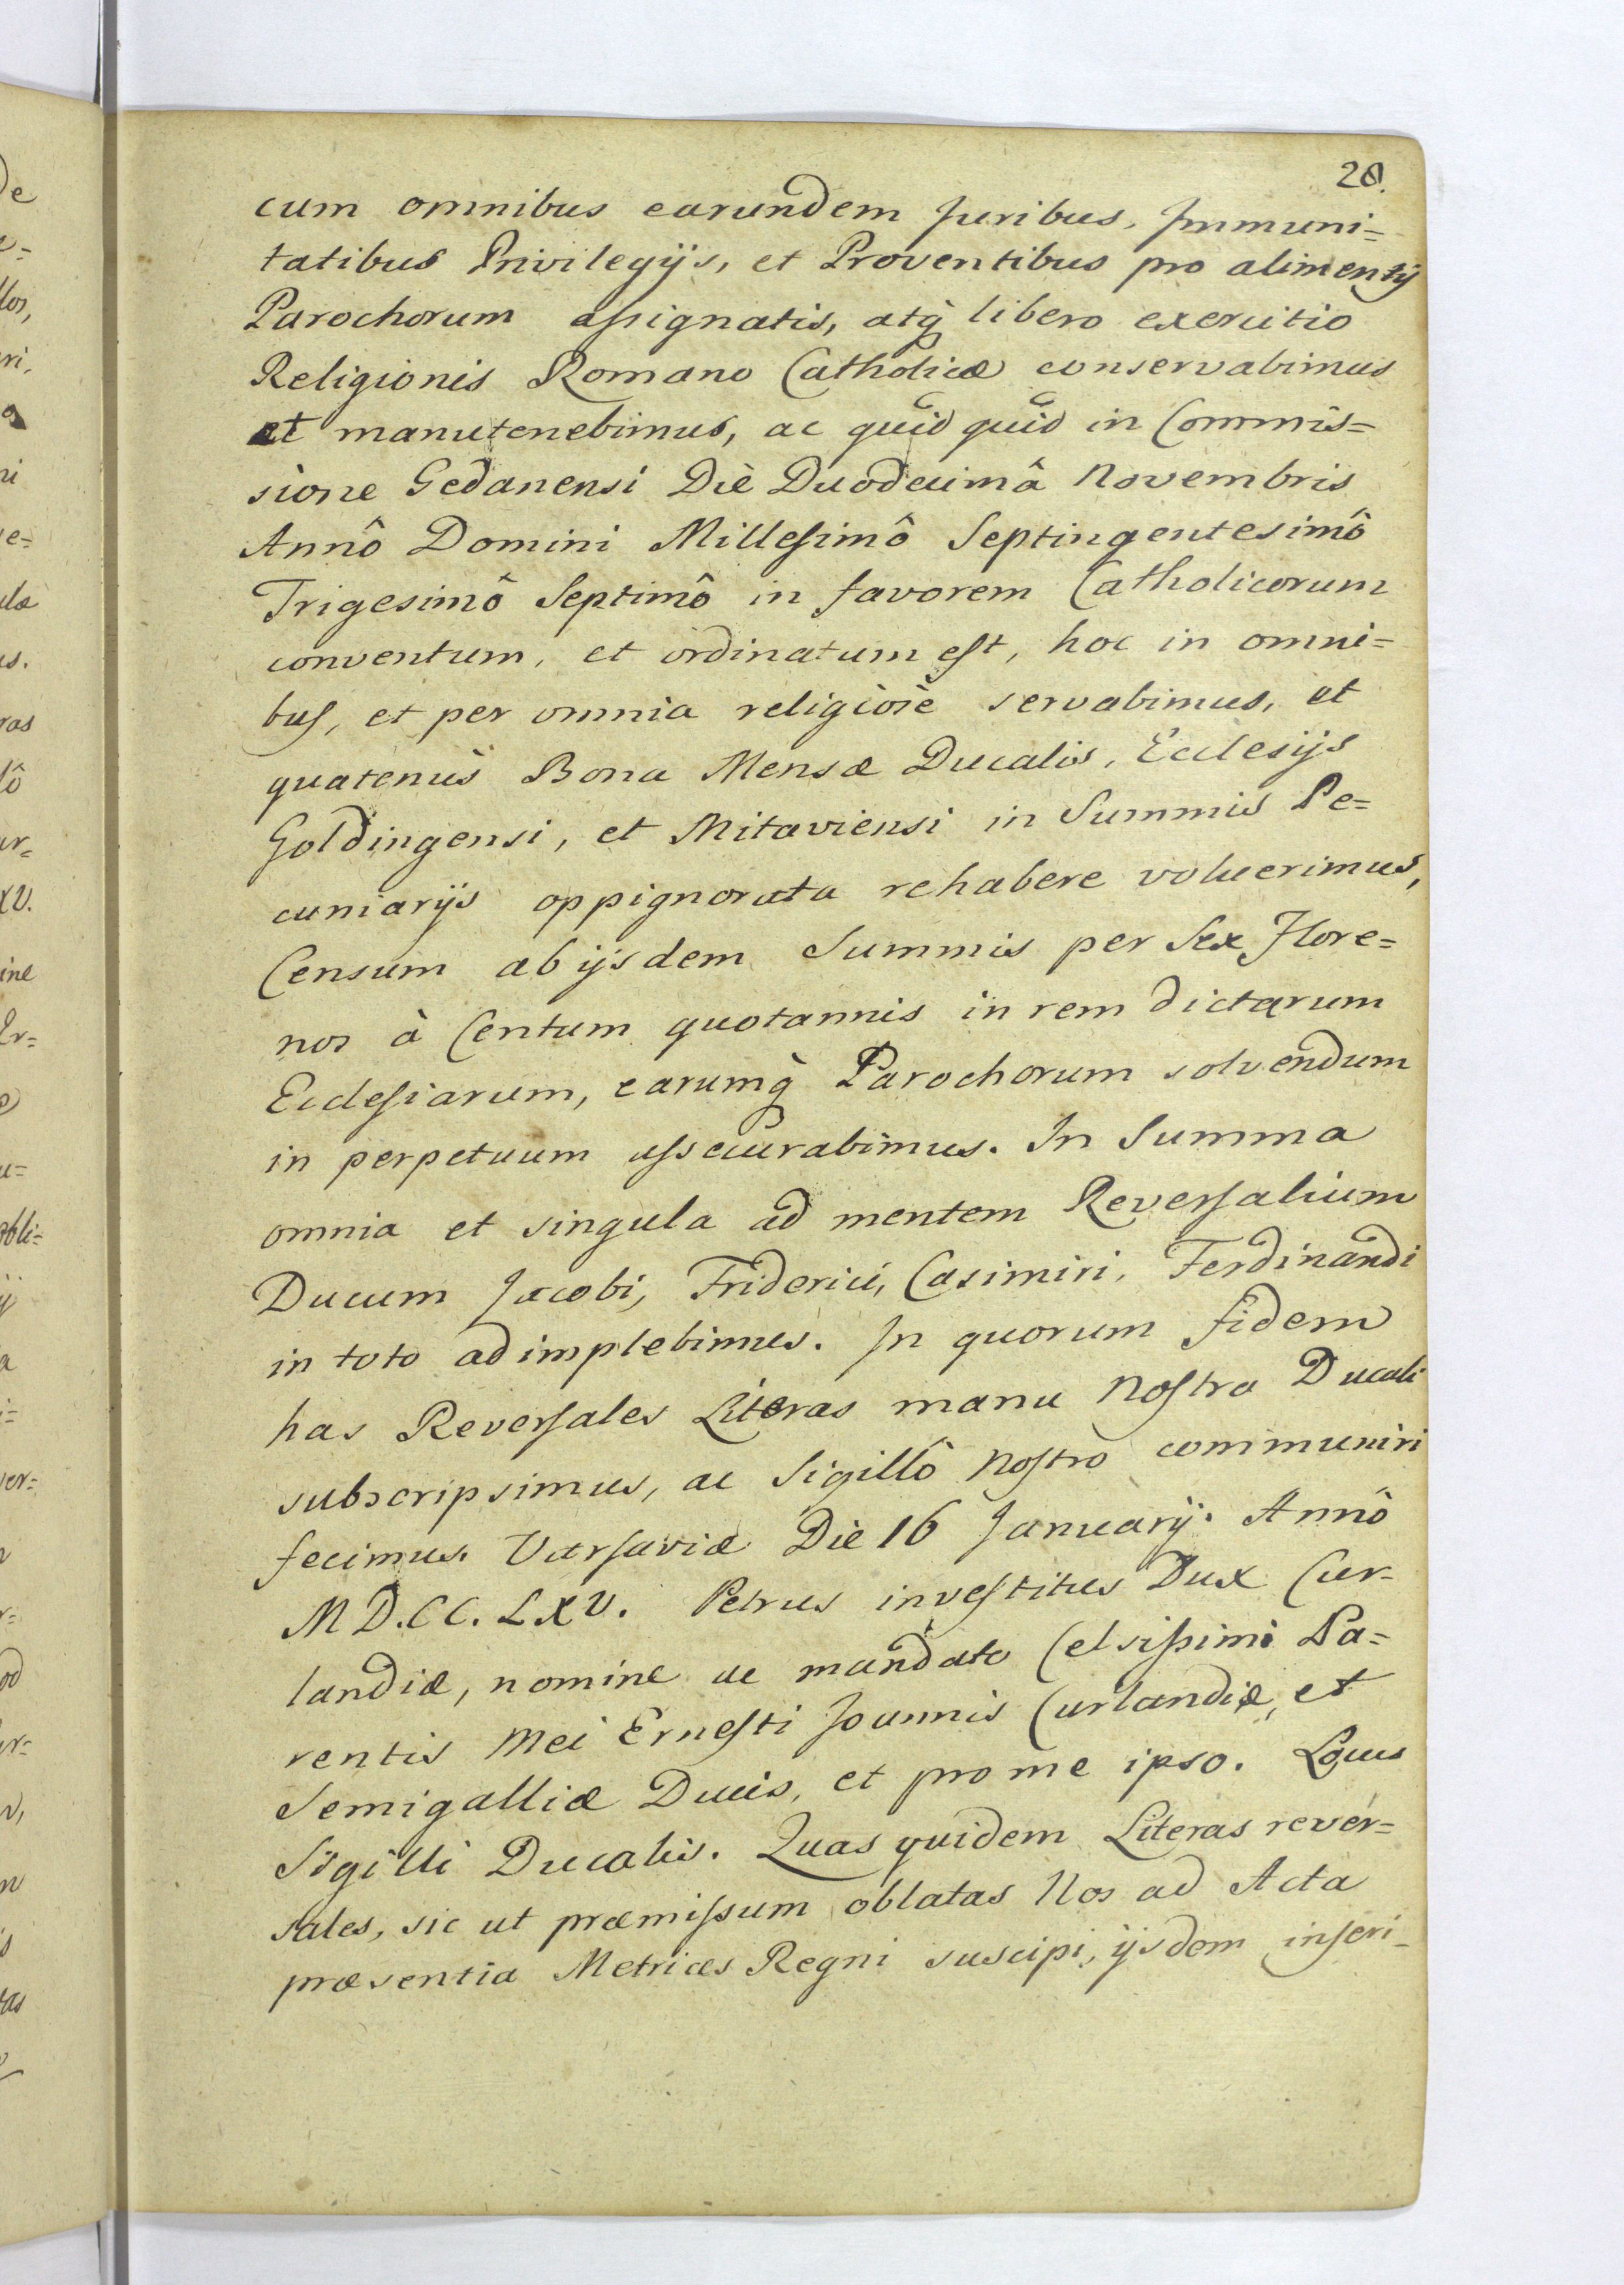 28.
cum omnibus earundem Juribus, Immuni=
tatibus Privilegijs, et Proventibus pro alimentij
Parochorum assignatis, atq̀ libero exercitio
Religionis Romano Catholicæ conservabimus
et manutenebimus, ac quid quid in Commis=
sione Gedanensi Diè Duodecimâ Novembris
Annô Domini Millesimô Septingentesimô
Trigesimô Septimô in favorem Catholicorum
conventum, et ordinatum est, hoc in omni=
bus, et per omnia religiosè servabimus, et
quatenùs Bona Mensæ Ducalis, Ecclesijs
Goldingensi, et Mitaviensi in Summis Pe=
cuniarijs oppignorata rehabere voluerimus,
Censum ab ijsdem Summis per Sex Flore=
nos à Centum quotannis in rem dictarum
Ecclesiarum, earumq̀ Parochorum solvendum
in perpetuum assecurabimus. In Summa
omnia et singula ad mentem Reversalium
Ducum Jacobi, Friderici, Casimiri, Ferdinandi
in toto adimplebimus. In quorum fidem
has Reversales Literas manu Nostra Ducali
subscripsimus, ac Sigillô Nostro communiri
fecimus. Varsaviæ Die 16 Januarij. Annô
MD.CC.LXV. Petrus investitus Dux Cur-
landiæ, nomine ac mandato Celsissimi Pa=
rentis Mei Ernesti Joannis Curlandiæ, et
Semigalliæ Ducis, et pro me ipso. Locus
Sigilli Ducalis. Quas quidem Literas rever=
sales, sic ut præmissum oblatas Nos ad Acta
præsentia Metrices Regni suscipi, ijsdem inseri-